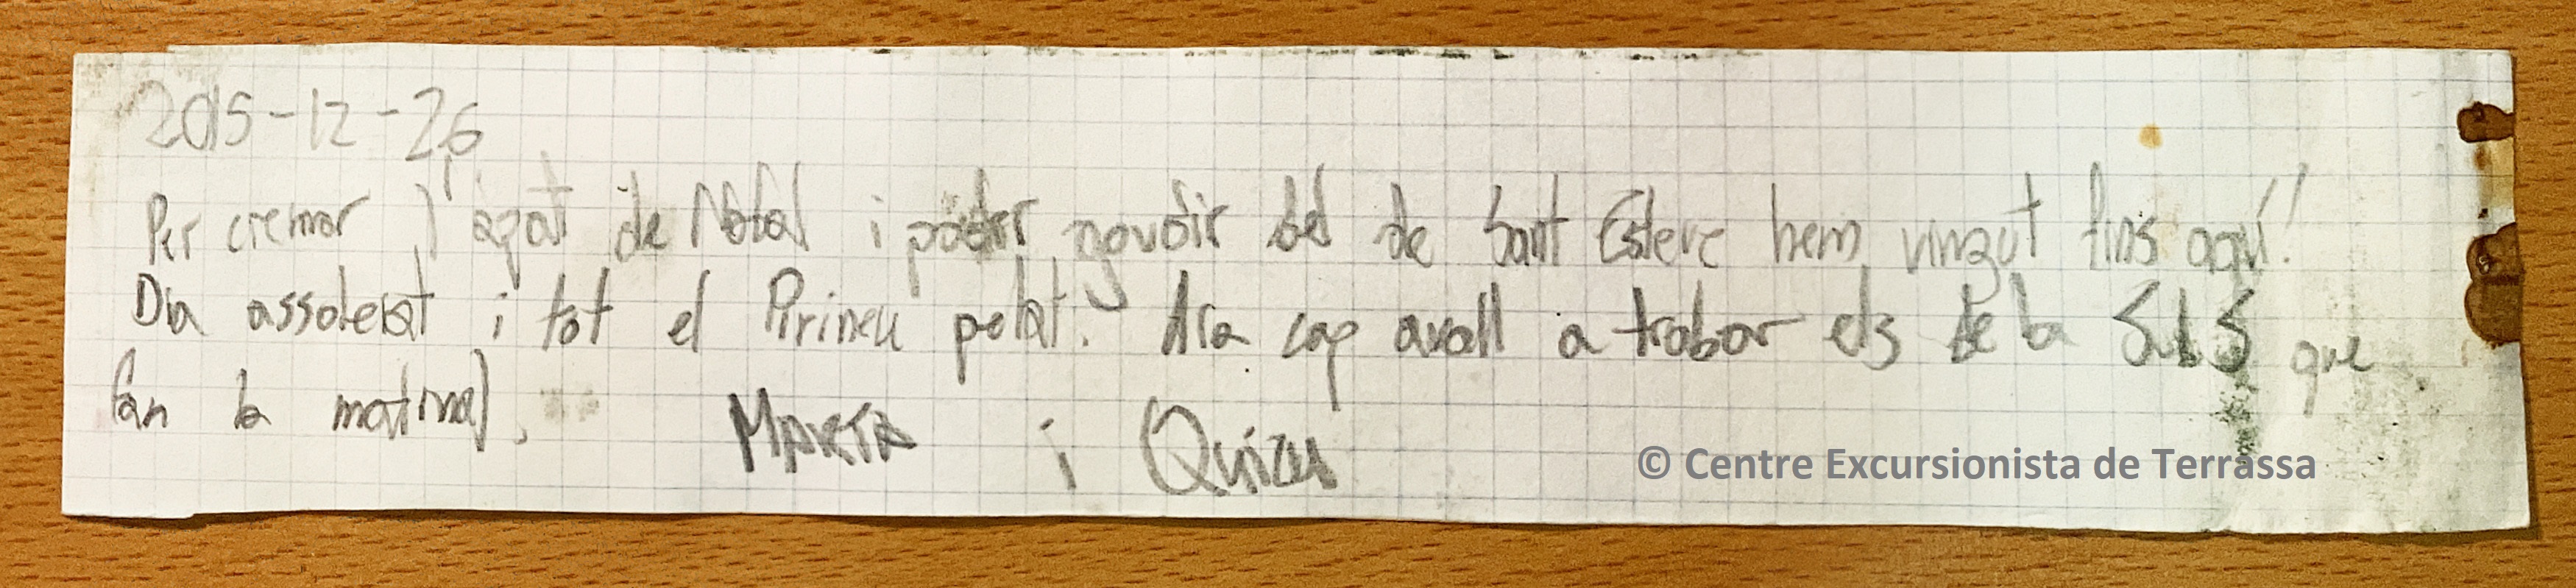 2015-12-26
Per cremar l'àpat de Natal i poder gaudir del de Sant Esteve hem vingut fins aquí!
Dia assoleiat i tot el Pirineu pelat. Ara cap avall a trobar els de la SBS que
fan la matinal.
MARTA i Quizu
© Centre Excursionista de Terrassa